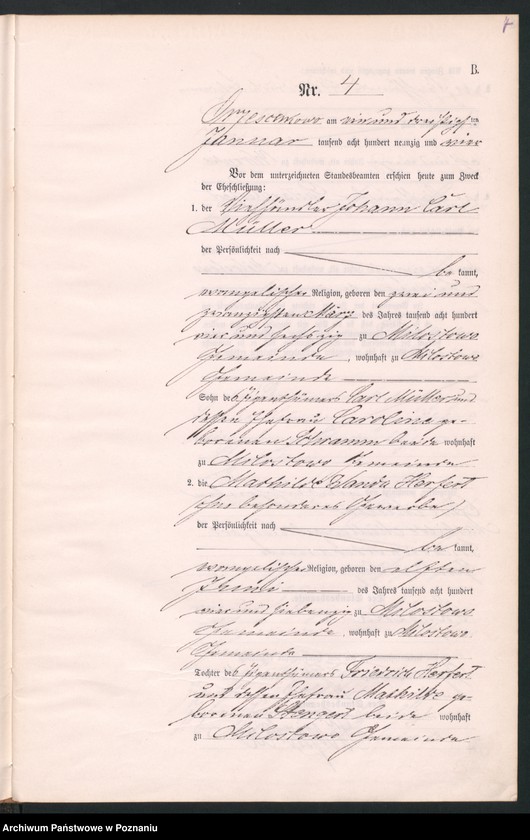 B.
Nr. 4
am vier und dreißigsten
Januar tausend acht hundert neunzig und vier
Vor dem unterzeichneten Standesbeamten erschien heute zum Zweck
der Eheschließung:
1. der Viehhändler Johann Carl
Müller
der Persönlichkeit nach
be kannt,
evangelischer Religion, geboren den zwei und
zwanzigsten März des Jahres tausend acht hundert
vier und sechszig zu Milostowo
Gemeinde, wohnhaft zu Milostowo
Gemeinde
Sohn des Eigenthümers Carl Müller und
dessen Ehefrau Caroline ge-
borenen Schramm beide wohnhaft
zu Milostowo Gemeinde
2. die Mathilde Wanda Herfert
ohne besonderes Gewerbe
der Persönlichkeit nach
be kannt,
evangelischer Religion, geboren den elften
Juni des Jahres tausend acht hundert
vier und siebenzig zu Milostowo
Gemeinde, wohnhaft zu Milostowo
Gemeinde
Tochter des Eigenthümers Friedrich Herfert
und dessen Ehefrau Mathilde ge-
borenen beide wohnhaft
zu Milostowo Gemeinde
Archiwum Państwowe w Poznaniu